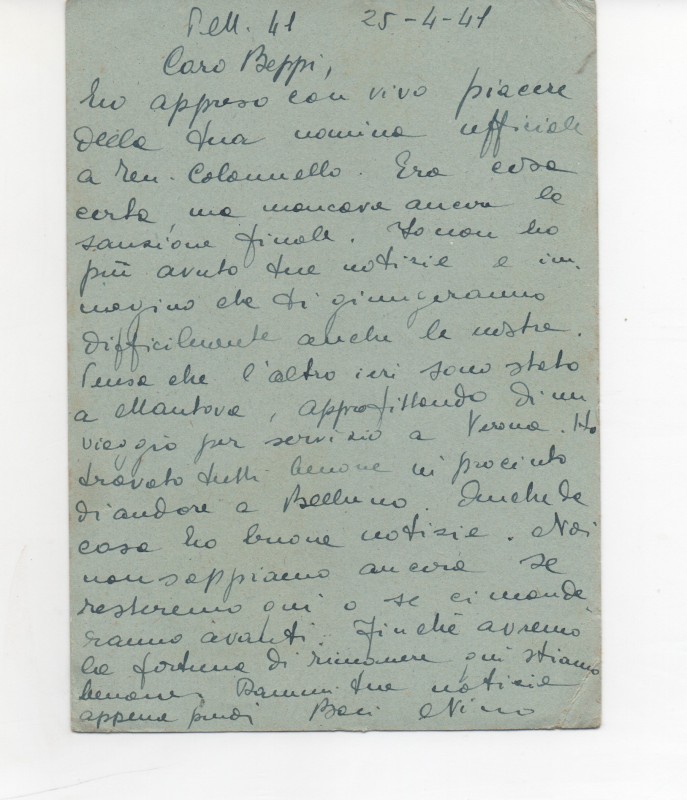 P.M. 41 25-4-41
Caro Beppi,
Ho appreso con vivo piacere
della tua nomina ufficiale
a Ten. Colonnello. Era cosa
certa, ma mancava ancora la
sanzione finale. Io non ho
più avuto tue notizie e im-
magino che ti giungeranno
difficilmente anche le nostre.
Pensa che l'altro ieri sono stato
a Mantova, approfittando di un
viaggio per servizio a Verona. Ho
trovato tutti benone in procinto
di andare a Belluno. Anche da
casa ho buone notizie. Noi
non sappiamo ancora se
resteremo qui o se ci mande-
ranno avanti. Finchè avremo
la fortuna di rimanere qui stiamo
benone. Dammi tue notizie
appena puoi Baci Nino